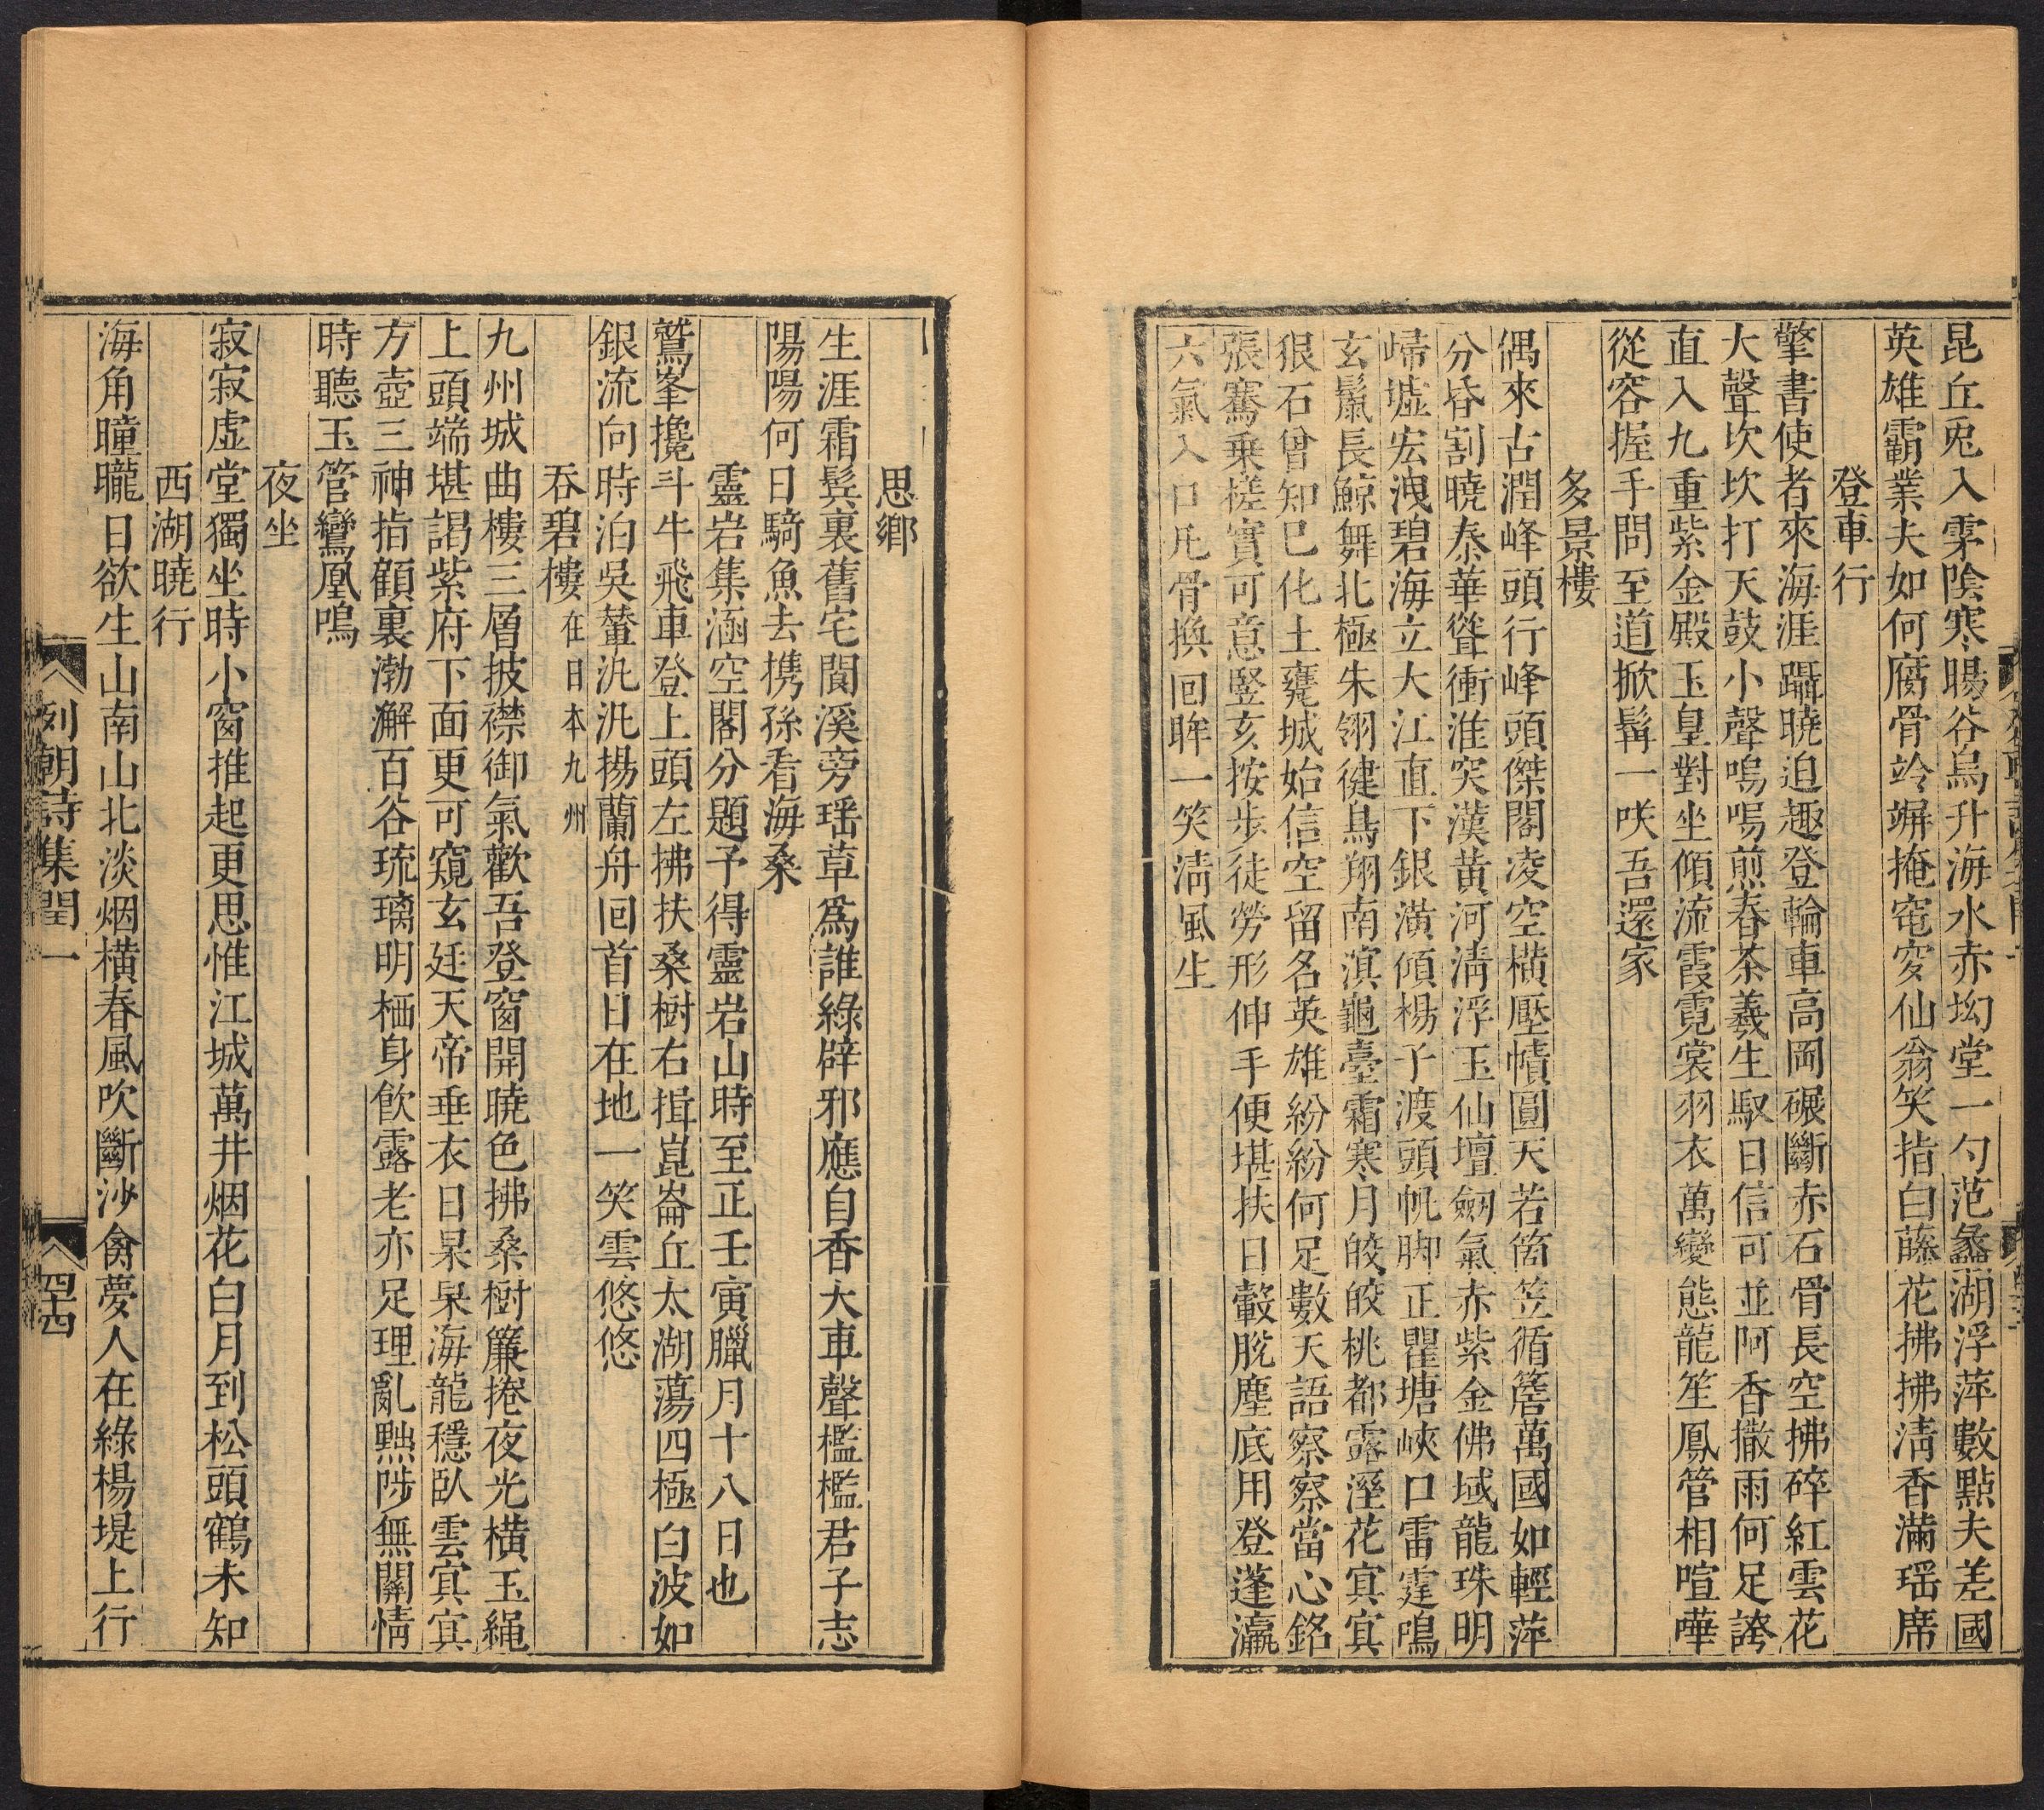 昆丘兎入雾陰寒暘谷烏升海水赤坳堂一勺范蠡湖浮萍數點夫差國
英雄霸業夫如何腐骨竛竮掩窀穸仙翁笑指白藤花拂拂淸香滿瑶席
登車行
擎書使者來海涯躡曉迫趣登輪車高岡碾斷赤石骨長空拂碎紅雲花
大聲坎坎打天鼓小聲嗚喝煎春茶羲生馭日信可並阿香撒雨何足誇
直入九重紫金殿玉皇對坐傾流霞霓裳羽衣萬變態龍笙鳳管相喧嘩
從容握手問至道掀髯一咲吾還家
多景樓
偶來古潤峰頭行峰頭傑閣凌空橫壓幘圓天若箇笠循簷萬國如輕萍
分昏割曉泰華聳衝淮突漢黃河淸浮玉仙壇劒氣赤紫金佛域龍珠明
㱕墟宏洩碧海立大江直下銀潢傾楊子渡頭帆脚正瞿塘峽口雷霆鳴
玄鬣長鯨舞北極朱翎健鳥翔南溟龜臺霜寒月皎皎桃都露溼花㝠㝠
狠石曾知已化土甕城始信空留名英雄紛紛何足數天語察察當心銘
張騫乗槎實可意竪亥按步徒勞形伸手便堪扶日轂脫塵底用登蓬瀛
六氣入口凡骨換回眸一笑淸風生
思鄉
生涯霜鬂裏舊宅閬溪旁瑶草爲誰綠辟邪應自香大車聲檻檻君子志
陽陽何日騎魚去携孫看海桑
靈岩集涵空閣分題予得靈岩山時至正壬寅臘月十八日也
鷲峯攙斗牛飛車登上頭左拂扶桑樹右揖崑崙丘太湖蕩四極白波如
銀流向時泊吳鼇汎汎揚蘭舟回首日在地一笑雲悠悠
吞碧樓在日本九州
九州城曲樓三層披襟御氣歡吾登窗開曉色拂桑樹簾捲夜光橫玉繩
上頭端堪謁紫府下面更可窺玄廷天帝垂衣日杲杲海龍穩臥雲㝠㝠
方壺三神指顧裏渤澥百谷琉璃明栖身飮露老亦足理亂黜陟無關情
時聽玉管鸞凰鳴
夜坐
寂寂虛堂獨坐時小窗推起更思惟江城萬井烟花白月到松頭鶴未知
西湖曉行
海角曈曨日欲生山南山北淡烟橫春風吹斷沙禽夢人在綠楊堤上行
列朝詩集閏一
四十四